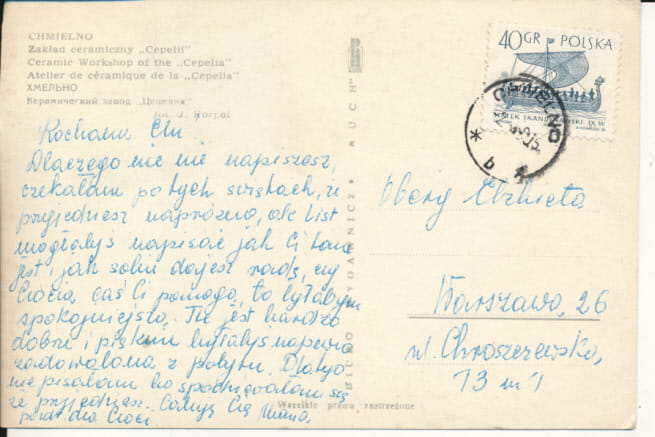 CHMIELNO
Zakład ceramiczny „Cepelii"
Ceramic Workshop of the „Cepelia"
Atelier de céramique de la „Cepelia"
ХМЕЛЬНО
Керамический завод „Цепелия"
fot. J. Korpal
Kochana Elu
Dlaczego nic nie napiszesz,
czekałam po tych świętach, że
przyjedziesz napróżno, ale list
mogłabyś napisać jak Ci tam
jest i jak sobie dajesz radę, czy
Ciocia coś Ci pomoga, to byłabym
spokojniejsza. Tu jest bardzo
dobrze i pięknie byłabyś napewno
zadowolona z pobytu. Dlatego
nie pisałam bo spodziewałam się
że przyjedziesz. Całuję Cię Mama.
pozdr. dla Cioci
BIURO WYDAWNICZE „RUCH"
Wszelkie prawa zastrzeżone
40 GR POLSKA
CHMIELNO
b
Elżbieta
Warszawa, 26
ul. Chroszczewska,
13 m 1